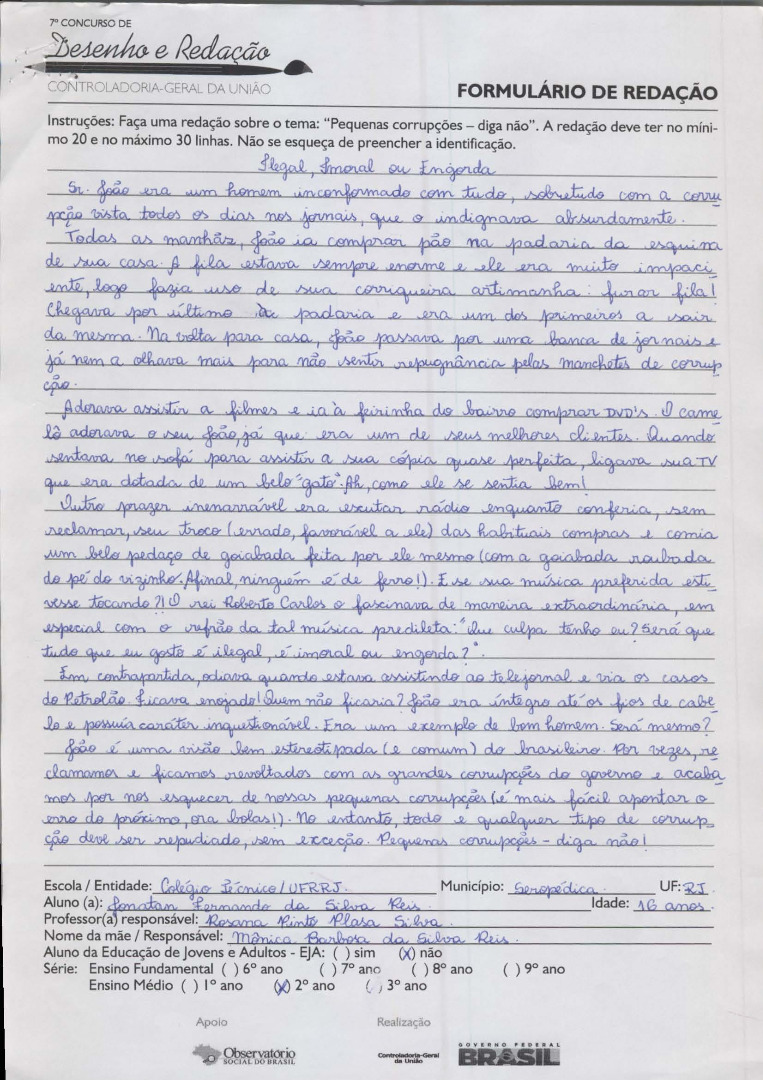 7º CONCURSO DE
Desenho e Redação
CONTROLADORIA-GERAL DA UNIÃO
FORMULÁRIO DE REDAÇÃO
Instruções: Faça uma redação sobre o tema: “Pequenas corrupções – diga não”. A redação deve ter no míni-
mo 20 e no máximo 30 linhas. Não se esqueça de preencher a identificação.
Ilegal, Imoral ou Engorda
Sr. João era um homem inconformado com tudo, sobretudo com a corru
pção vista todos os dias nos jornais, que o indignava absurdamente.
Todas as manhãs, João ia comprar pão na padaria da esquina
de sua casa. A fila estava sempre enorme e ele era muito impaci
ente, logo fazia uso de sua corriqueira artimanha: furar fila!
Chegava por último à padaria e era um dos primeiros a sair
da mesma. Na volta para casa, João passava por uma banca de jornais e
já nem a olhava mais para não sentir repugnância pelas manchetes de corrup
ção.
Adorava assistir a filmes e ia à feirinha do bairro comprar DVD's. O came
lô adorava o seu João, já que era um de seus melhores clientes. Quando
sentava no sofá para assistir a sua cópia quase perfeita, ligava sua TV
que era dotada de um belo "gato". Ah, como ele se sentia bem!
Outro prazer inenarrável era escutar rádio enquanto conferia, sem
reclamar, seu troco (errado, favorável a ele) das habituais compras e comia
um belo pedaço de goiabada feita por ele mesmo (com a goiabada roubada
do pé do vizinho. Afinal, ninguém é de ferro!). E se sua música preferida esti
vesse tocando?! O rei Roberto Carlos o fascinava de maneira extraordinária, em
especial com o refrão da tal música predileta: "Que culpa tenho eu? Será que
tudo que eu gosto é ilegal, é imoral ou engorda?".
Em contrapartida, odiava quando estava assistindo ao telejornal e via os casos
do Petrolão. Ficava enojado! Quem não ficaria? João era íntegro até os fios de cabe
lo e possuía caráter inquestionável. Era um exemplo de bom homem. Será mesmo?
João é uma visão bem estereotipada (e comum) do brasileiro. Por vezes, re
clamamos e ficamos revoltados com as grandes corrupções do governo e acaba
mos por nos esquecer de nossas pequenas corrupções (é mais fácil apontar o
erro do próximo, ora bolas!). No entanto, todo e qualquer tipo de corrup
ção deve ser repudiado, sem exceção. Pequenas corrupções – diga não!
Escola / Entidade: Colégio Técnico/UFRRJ. Município: Seropédica. UF: RJ
Aluno (a): Jonatan Fernando da Silva Reis. Idade: 16 anos.
Professor(a) responsável: Rosana Pinto Plasa Silva.
Nome da mãe / Responsável: Mônica Barbosa da Silva Reis.
Aluno da Educação de Jovens e Adultos - EJA: ( ) sim (X) não
Série: Ensino Fundamental ( ) 6º ano ( ) 7º ano ( ) 8º ano ( ) 9º ano
Ensino Médio ( ) 1º ano (X) 2º ano ( ) 3º ano
Apoio Realização
Observatório SOCIAL DO BRASIL
Controladoria-Geral da União
GOVERNO FEDERAL BRASIL